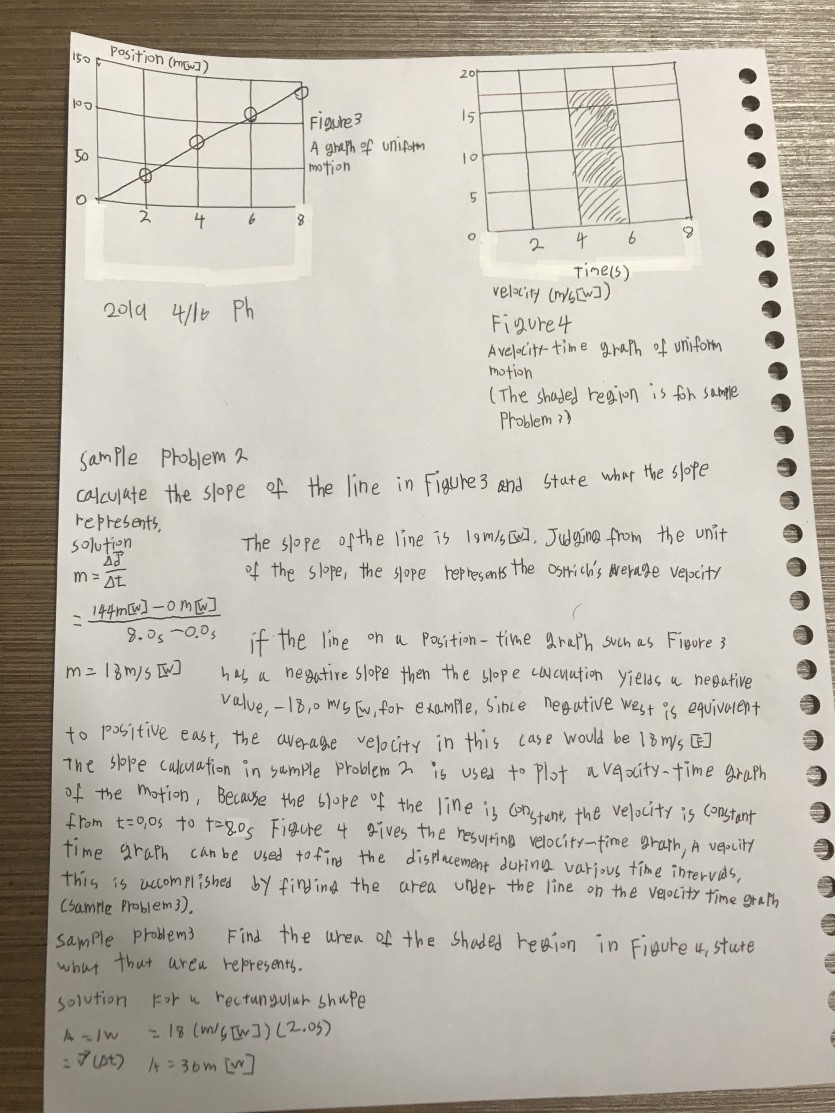 Position (m[w])
150
100
50
0
2 4 6 8
Figure 3
A graph of uniform
motion
20
15
10
5
0
2 4 6 8
Time(s)
velocity (m/s[w])
Figure 4
A velocity-time graph of uniform
motion
(The shaded region is for sample
Problem 3)
2019 4/16 Ph
Sample Problem 2
calculate the slope of the line in Figure 3 and state what the slope
represents,
solution
m = Δd⃗/Δt
= 144m[w] - 0 m[w] / 8.0s - 0.0s
m = 18m/s [w]
The slope of the line is 18m/s[w], Judging from the unit
of the slope, the slope represents the ostrich's average velocity
if the line on a position-time graph such as Figure 3
has a negative slope then the slope calculation yields a negative
value, -18,0 m/s [w, for example, since negative west is equivalent
to positive east, the average velocity in this case would be 18m/s [E]
The slope calculation in sample problem 2 is used to plot a velocity-time graph
of the motion, Because the slope of the line is constant, the velocity is constant
from t=0,0s to t=8.0s Figure 4 gives the resulting velocity-time graph, A velocity
time graph can be used to find the displacement during various time intervals,
this is accomplished by finding the area under the line on the velocity time graph
(sample Problem 3).
sample problem3 Find the area of the shaded region in Figure 4, state
what that area represents.
solution For a rectangular shape
A = lw = 18 (m/s[w]) (2.0s)
= v⃗(Δt) A = 36m [w]